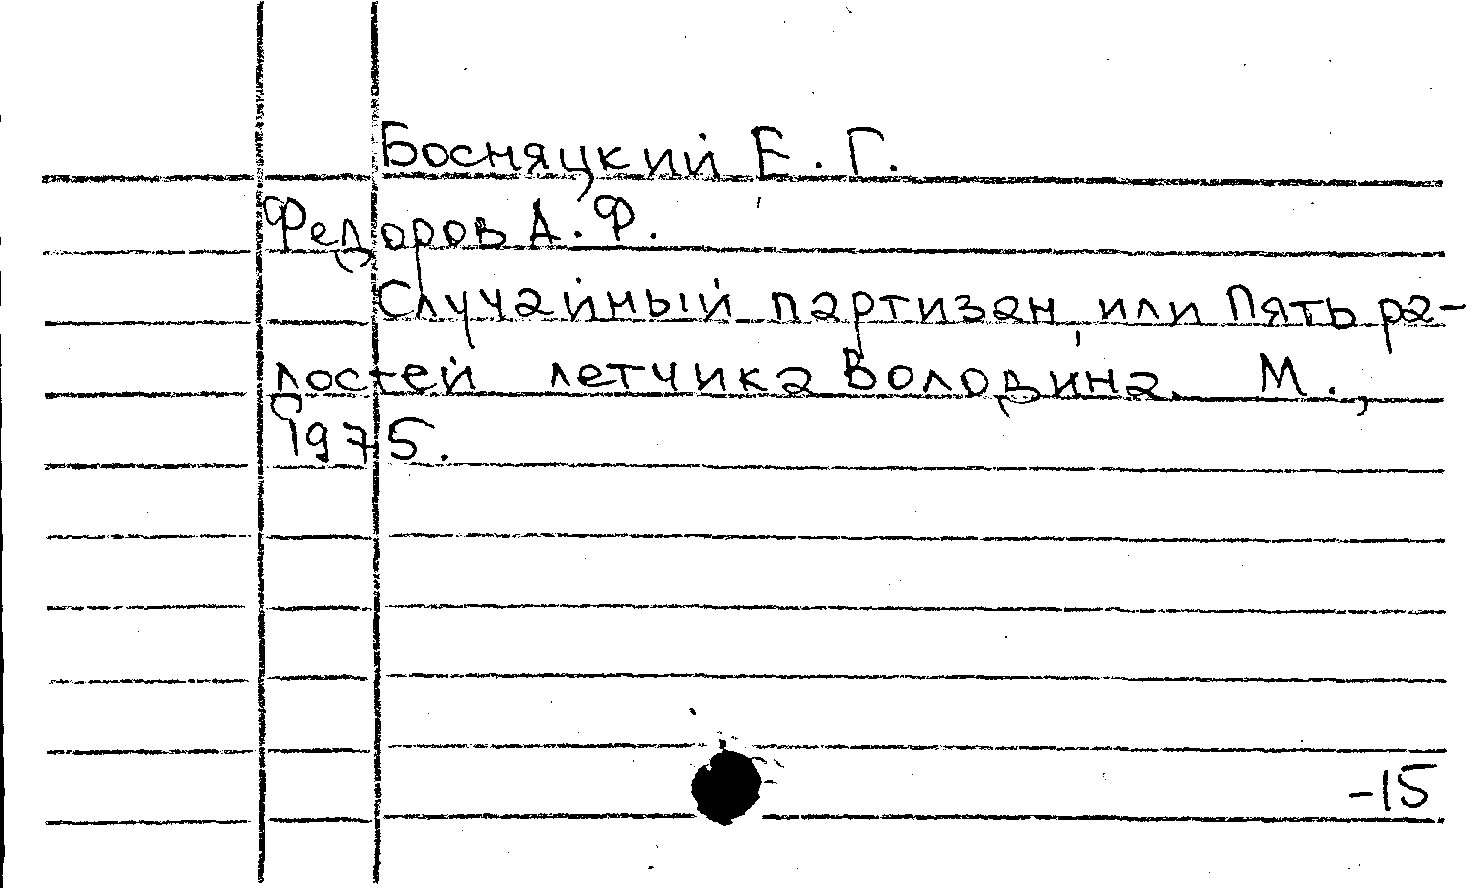 Босняцкий Е. Г.
Федоров А. Ф.
Случайный партизан, или Пять ра-
достей летчика Володина. М.,
1975.
-15